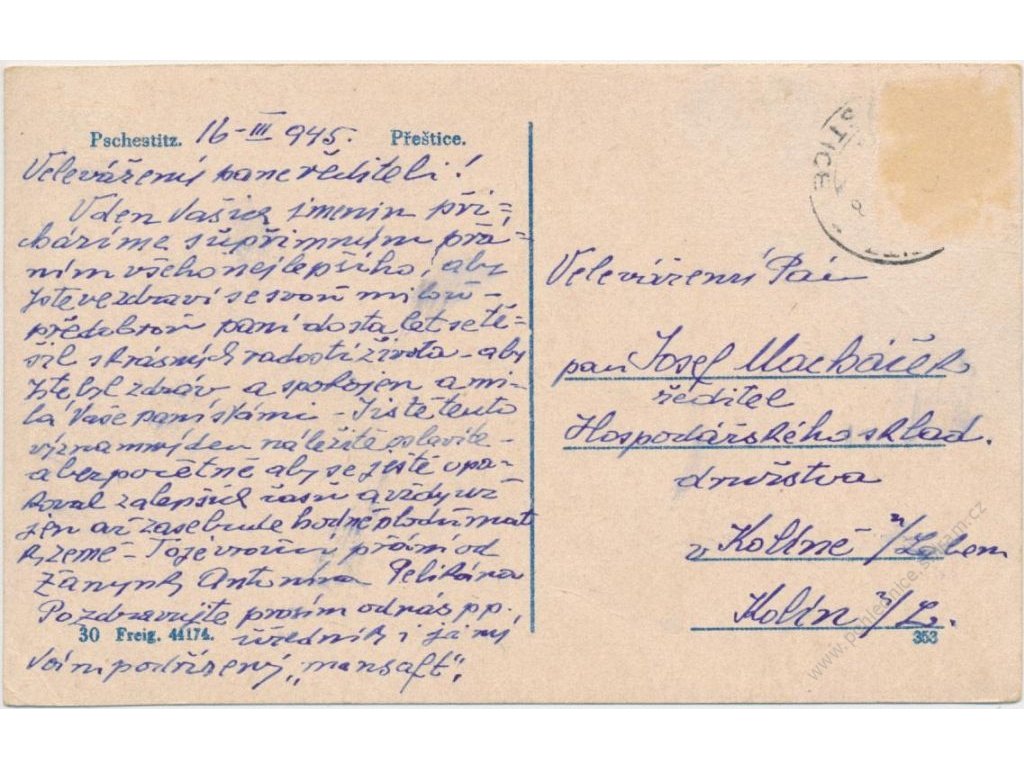 Pschestitz. 16-III 945. Přeštice.
Velevážený pane řediteli!
V den Vašich jmenin při=
cházíme s upřimným přá=
ním všeho nejlepšího, aby
jste ve zdraví se svou milou -
předobrou paní dosta let se tě=
šil s krásných radostí života - aby
jste byl zdráv a spokojen a mi-
lá Vaše paní s Vámi - Jistě tento
významný den náležitě oslavíte -
a bezpočetně aby se ještě opa-
koval za lepších časů a vždy už
jen ať zase bude hodně plodů mat
k země - To je vroucí přání od
Antonína Pelikána
Pozdravujte prosím od nás p.p.
30 Freig. 44174. úředník i jiný
podřízený „mansaft".
STICE
Velevážený Pán
pan Josef Macháček
ředitel
Hospodářského sklad.
družstva
v Kolíně n/Labem
Kolín n/L.
353
www.pohlednice.sberam.cz